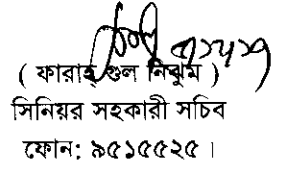 ( ফারাহ্ গুল নিঝুম )
সিনিয়র সহকারী সচিব
ফোন: ৯৫১৫৫২৫।